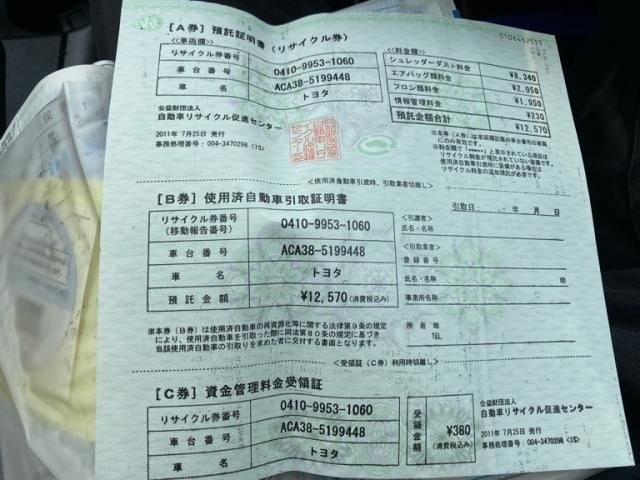 0106462555
[A券] 預託証明書 (リサイクル券)
<<車両欄>>
リサイクル券番号 0410-9953-1060
車台番号 ACA38-5199448
車名 トヨタ
公益財団法人
自動車リサイクル促進センター
2011年 7月25日 発行
事務処理番号:004-3470298 <3S>
<<料金欄>>
シュレッダーダスト料金 ¥8,340
エアバッグ類料金 ¥2,050
フロン類料金 ¥1,950
情報管理料金 ¥230
預託金額合計 ¥12,570
<使用済自動車引渡時、引取業者切離し>
[B券] 使用済自動車引取証明書
引取日: 年 月 日
リサイクル券番号 (移動報告番号) 0410-9953-1060
車台番号 ACA38-5199448
車名 トヨタ
預託金額 ¥12,570(消費税込み)
<引渡者>
氏名・名称
<引取業者>
登録番号
氏名・名称 印
事業所名称
所在地
TEL
※本券(B券)は使用済自動車の再資源化等に関する法律第9条の規定
により、使用済自動車を引取った際に同法第80条の規定に基づき
当該使用済自動車の引取りを求めた者に交付する書面となります。
<受領証(C券)利用時切離し>
[C券] 資金管理料金受領証
リサイクル券番号 0410-9953-1060
車台番号 ACA38-5199448
車名 トヨタ
受領金額 ¥380 (消費税込み)
公益財団法人
自動車リサイクル促進センター
2011年 7月25日 発行
事務処理番号:004-3470298 <3S>